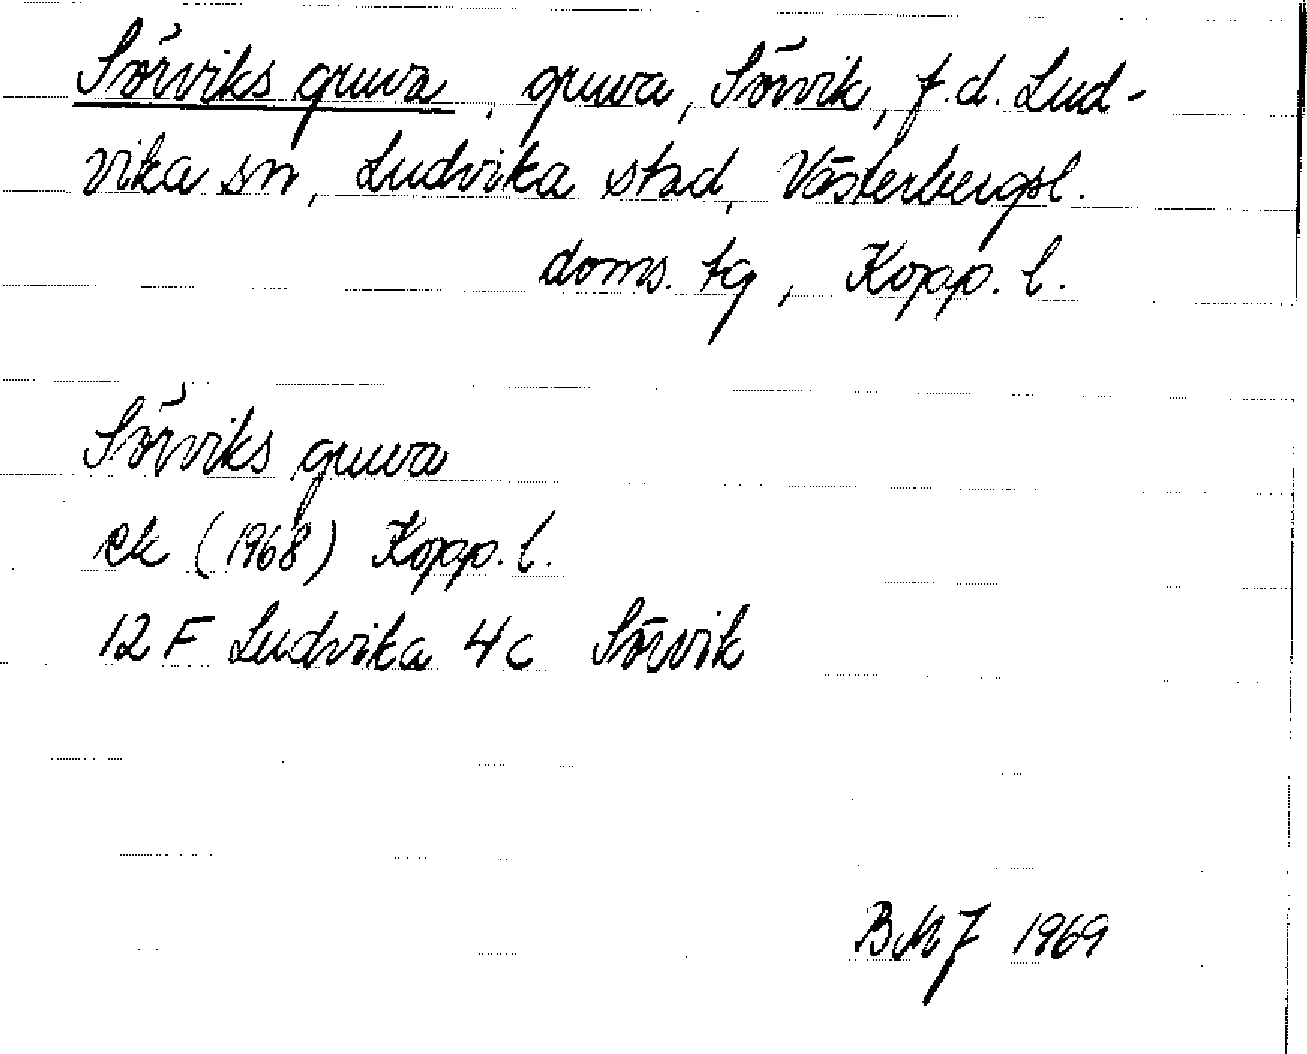 Sörviks gruva, gruva, Sörvik, f.d. Lud-
vika sn, Ludvika stad, Västerbergsl.
doms. tg, Kopp. l.
Sörviks gruva
ek (1968) Kopp. l.
12 F Ludvika 4 c Sörvik
BMJ 1969